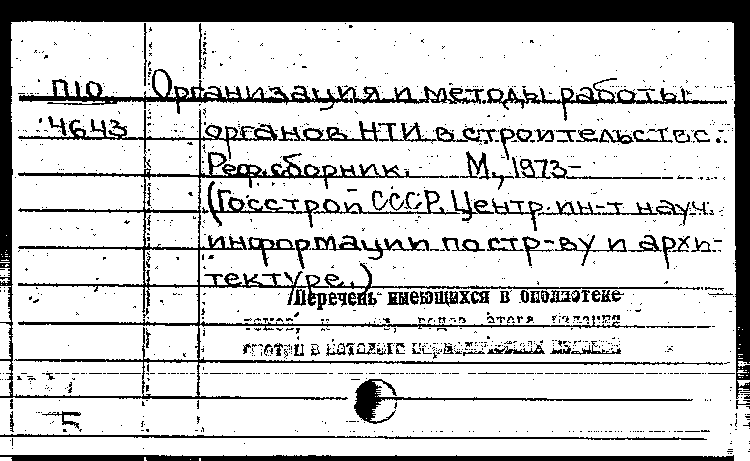 П10 Организация и методы работы
4643 органов НТИ в строительстве.
Реф.сборник. М., 1973-
(Госстрой СССР. Центр.ин-т науч.
информации по стр-ву и архи-
тектуре.)
Перечень имеющихся в библиотеке
томов, годов этого издания
смотри в каталоге периодических изданий
5